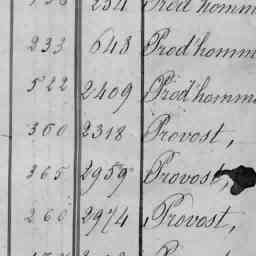 234 Prod'homm
233 648 Prod'homm
522 2409 Prod'homm
360 2318 Provost,
365 2959 Provost,
260 2974 Provost,